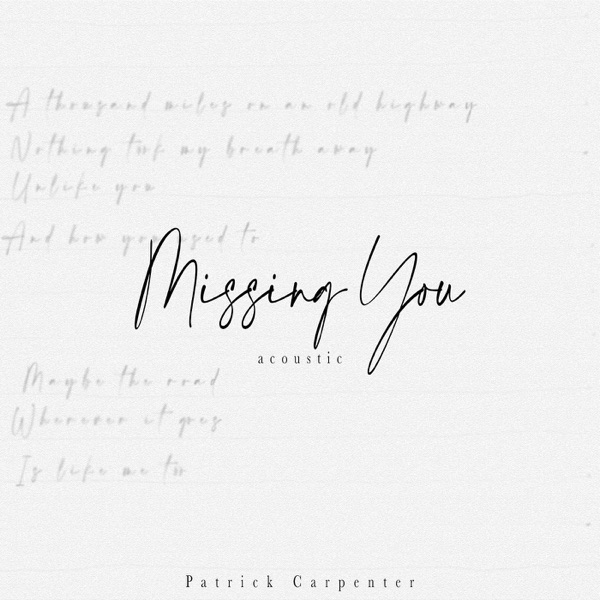 A thousand miles on an old highway
Nothing took my breath away
Unlike you
And how you used to
Missing You
acoustic
Maybe the road
Wherever it goes
Is like me too
Patrick Carpenter